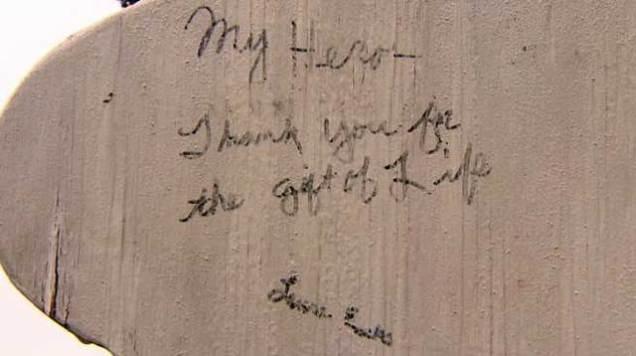 My Hero-
Thank you for
the gift of Life
Love